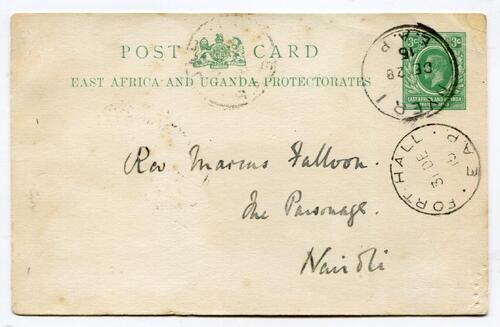 POST CARD
EAST AFRICA AND UGANDA PROTECTORATES
3c 3c
EAST AFRICA AND UGANDA
PROTECTORATES
E.A.P.
15
DE 28
FORT HALL
31 DE
15
E.A.P.
Rev Marcus Falloon.
The Parsonage.
Nairobi